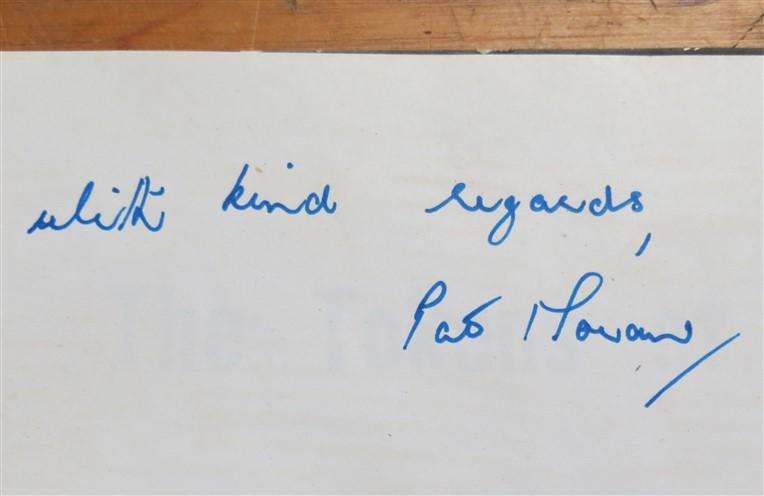 with kind regards,
Pat Moran